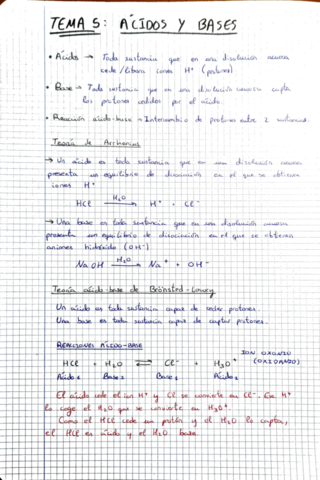 TEMA 5: ÁCIDOS Y BASES
• Ácido → Toda sustancia que en una disolución acuosa
cede/libera iones H⁺ (protones)
• Base → Toda sustancia que en una disolución acuosa capta
los protones cedidos por el ácido.
• Reacción ácido-base → Intercambio de protones entre 2 sustancias.
Teoría de Arrhenius
→ Un ácido es toda sustancia que en una disolución acuosa
presenta un equilibrio de disociación en el que se obtienen
iones H⁺
HCl —H₂O→ H⁺ + Cl⁻
→ Una base es toda sustancia que en una disolución acuosa
presenta un equilibrio de disociación en el que se obtienen
aniones hidróxido (OH⁻)
NaOH —H₂O→ Na⁺ + OH⁻
Teoría ácido-base de Brönsted-Lowry
Un ácido es toda sustancia capaz de ceder protones.
Una base es toda sustancia capaz de captar protones.
REACCIONES ÁCIDO-BASE
ION OXONIO
HCl + H₂O ⇌ Cl⁻ + H₃O⁺ (OXIDANIO)
Ácido 1 Base 2 Base 1 Ácido 2
El ácido cede el ion H⁺ y Cl se convierte en Cl⁻. Ese H⁺
lo coge el H₂O que se convierte en H₃O⁺
Como el HCl cede un protón y el H₂O lo capta,
el HCl es ácido y el H₂O base.